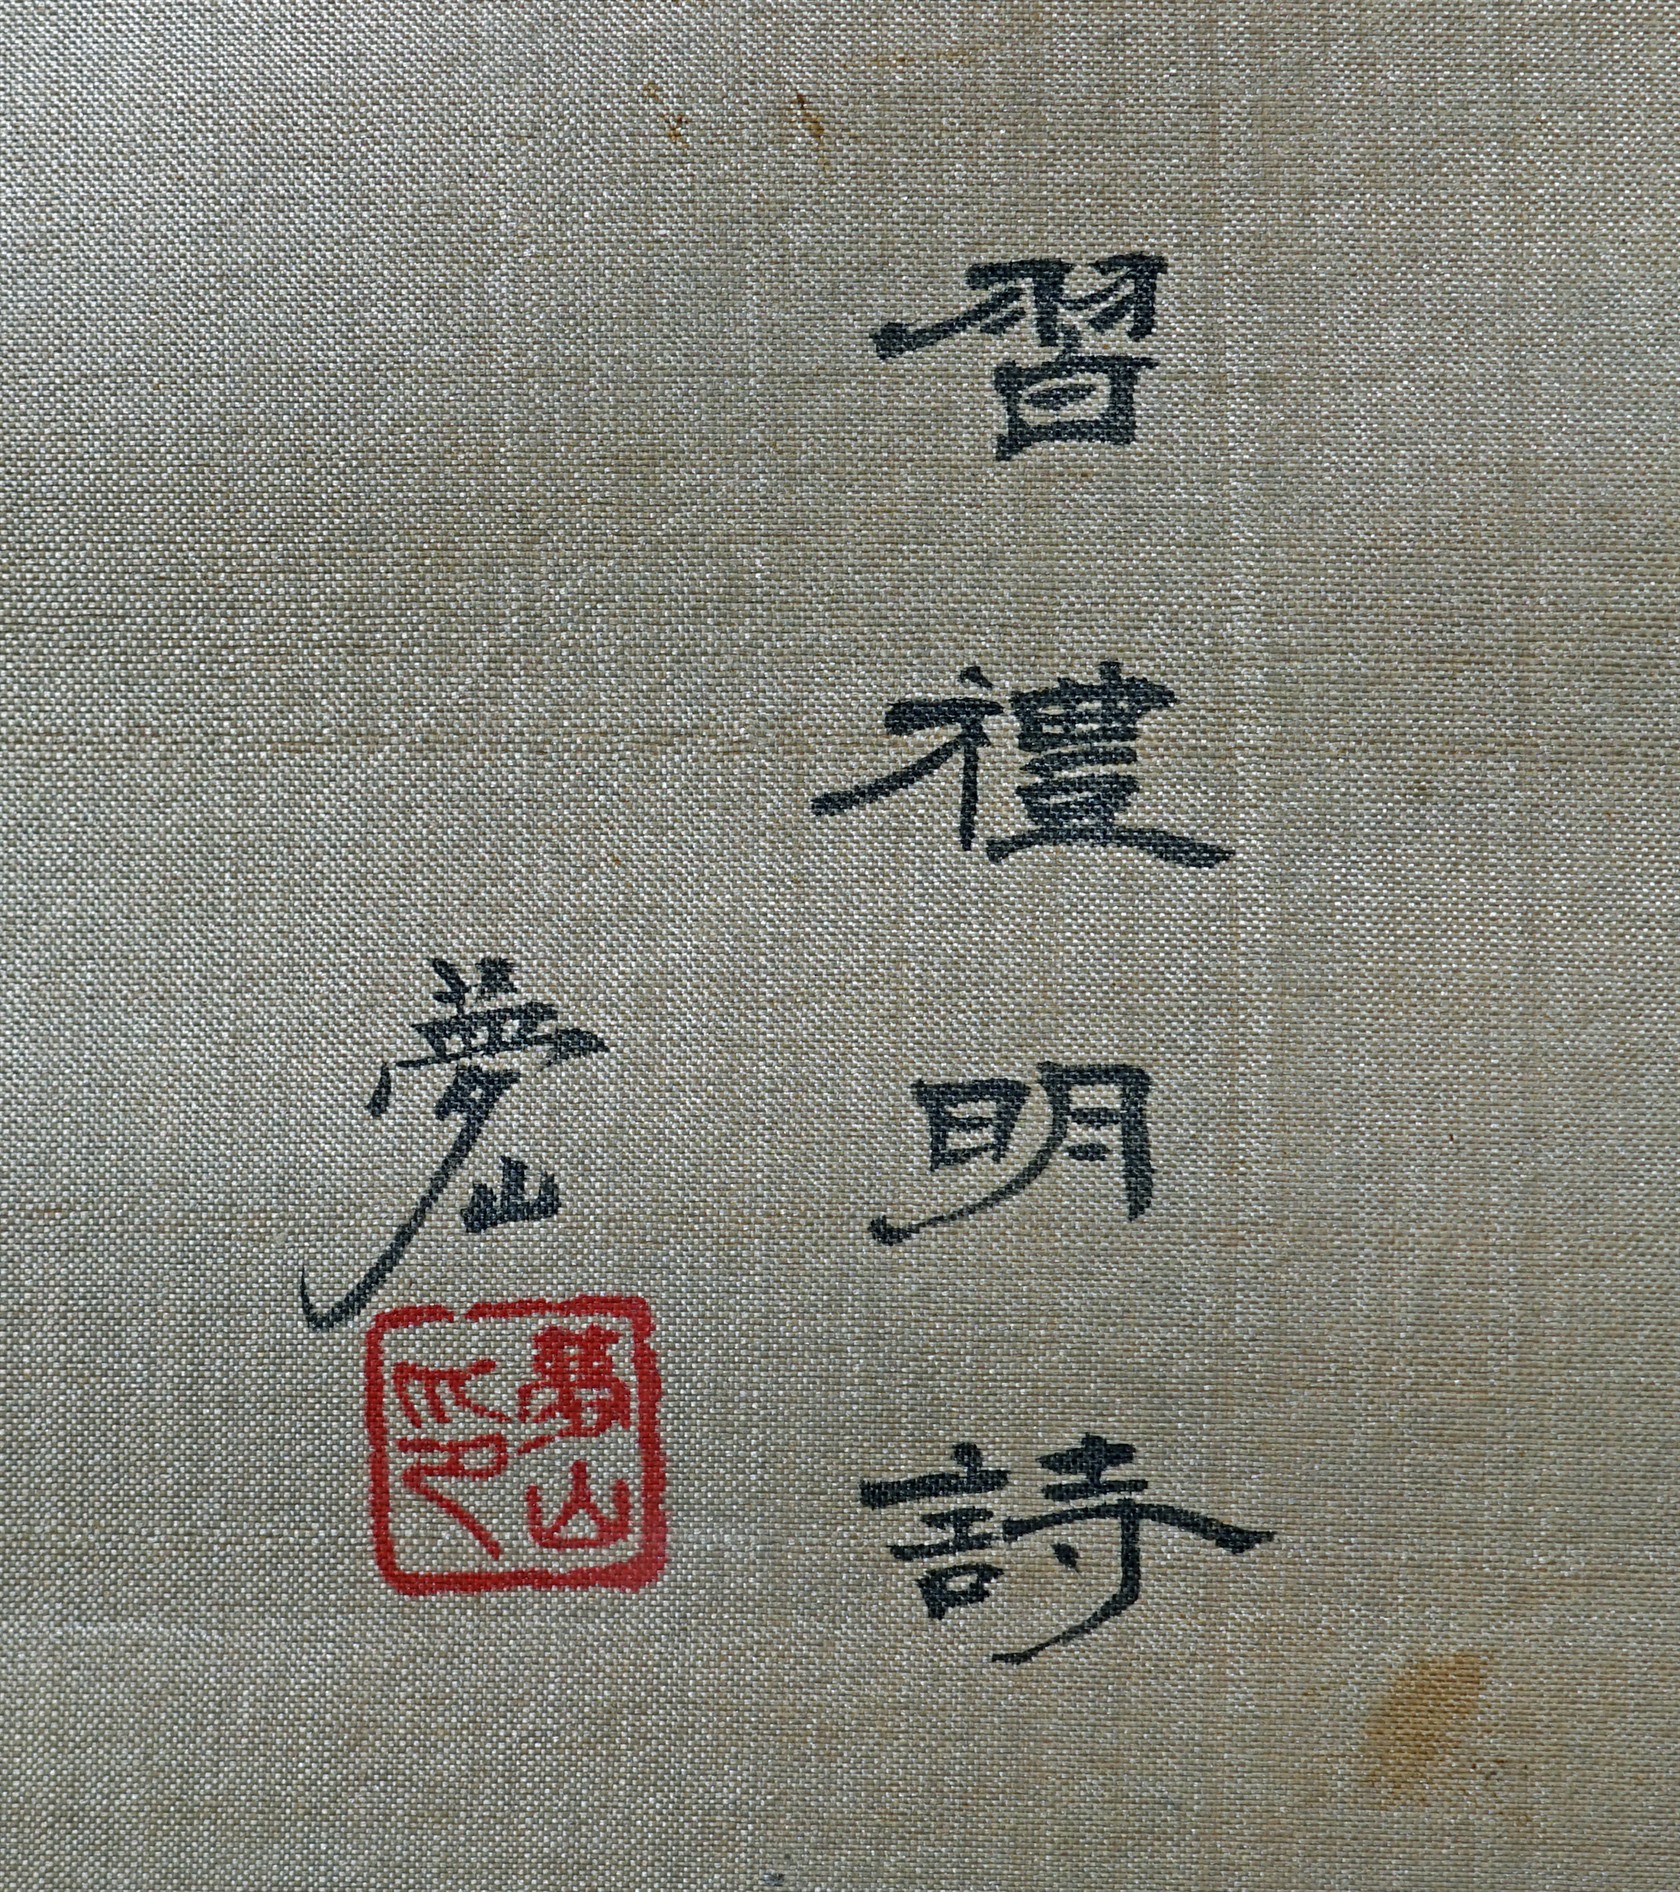 習禮明詩
夢山
夢山印